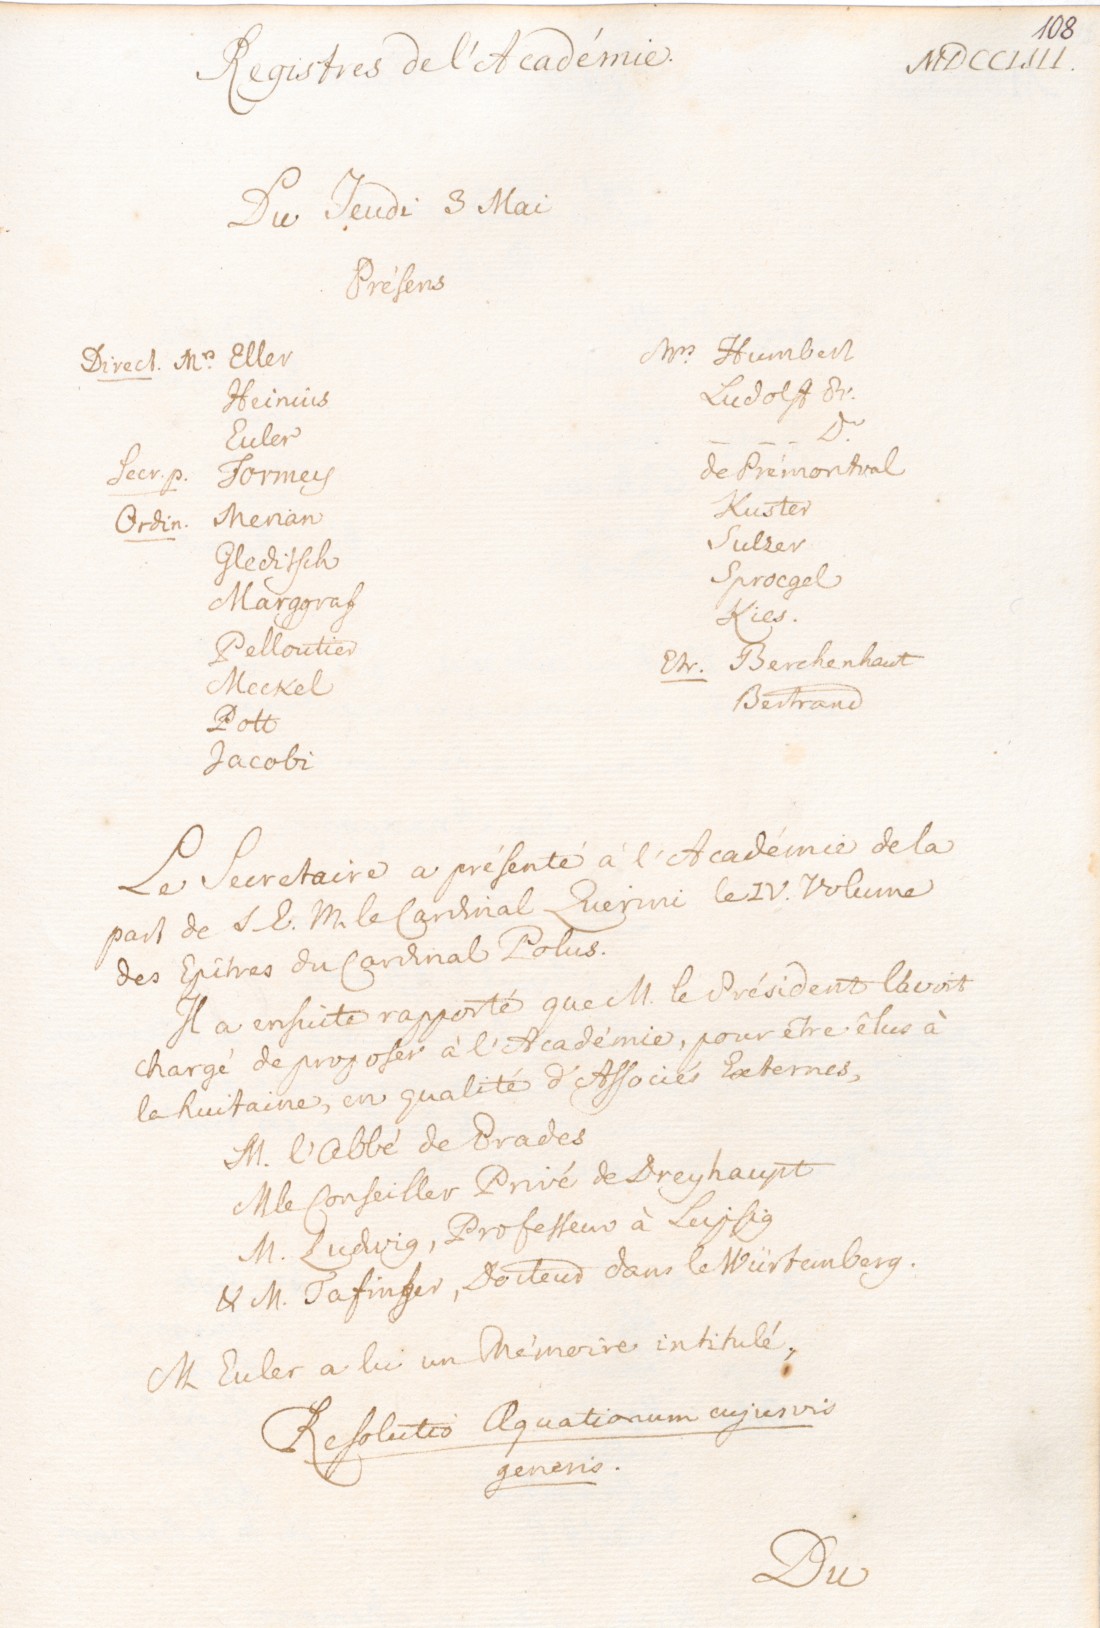 108
Registres de l'Académie.
MDCCLIII.
Du Jeudi 3 Mai
Présens
Direct. Mrs Eller
Heinius
Euler
Secr. p. Formey
Ordin. Merian
Gleditsch
Marggraf
Pelloutier
Meckel
Pott
Jacobi
Mrs Humbert
Ludolff Pr.
_ _ _ Dr
de Prémontval
Kuster
Sulzer
Sproegel
Kies.
Etr. Berchenhout
Bertrand
Le Secretaire a présenté à l'Académie de la
part de S. E. M. le Cardinal Querini le IV. Volume
des Epîtres du Cardinal Polus.
Il a ensuite rapporté que M. le Président l'avoit
chargé de proposer à l'Académie, pour être êlus à
la huitaine, en qualité d'Associés Externes,
M. l'Abbé de Prades
M le Conseiller Privé de Dreyhaupt
M. Ludwig, Professeur à Leipsig
& M. Tafinger, Docteur dans le Würtemberg.
M Euler a lu un Mémoire intitulé,
Resolutio Æquationum cujusvis
generis.
Du